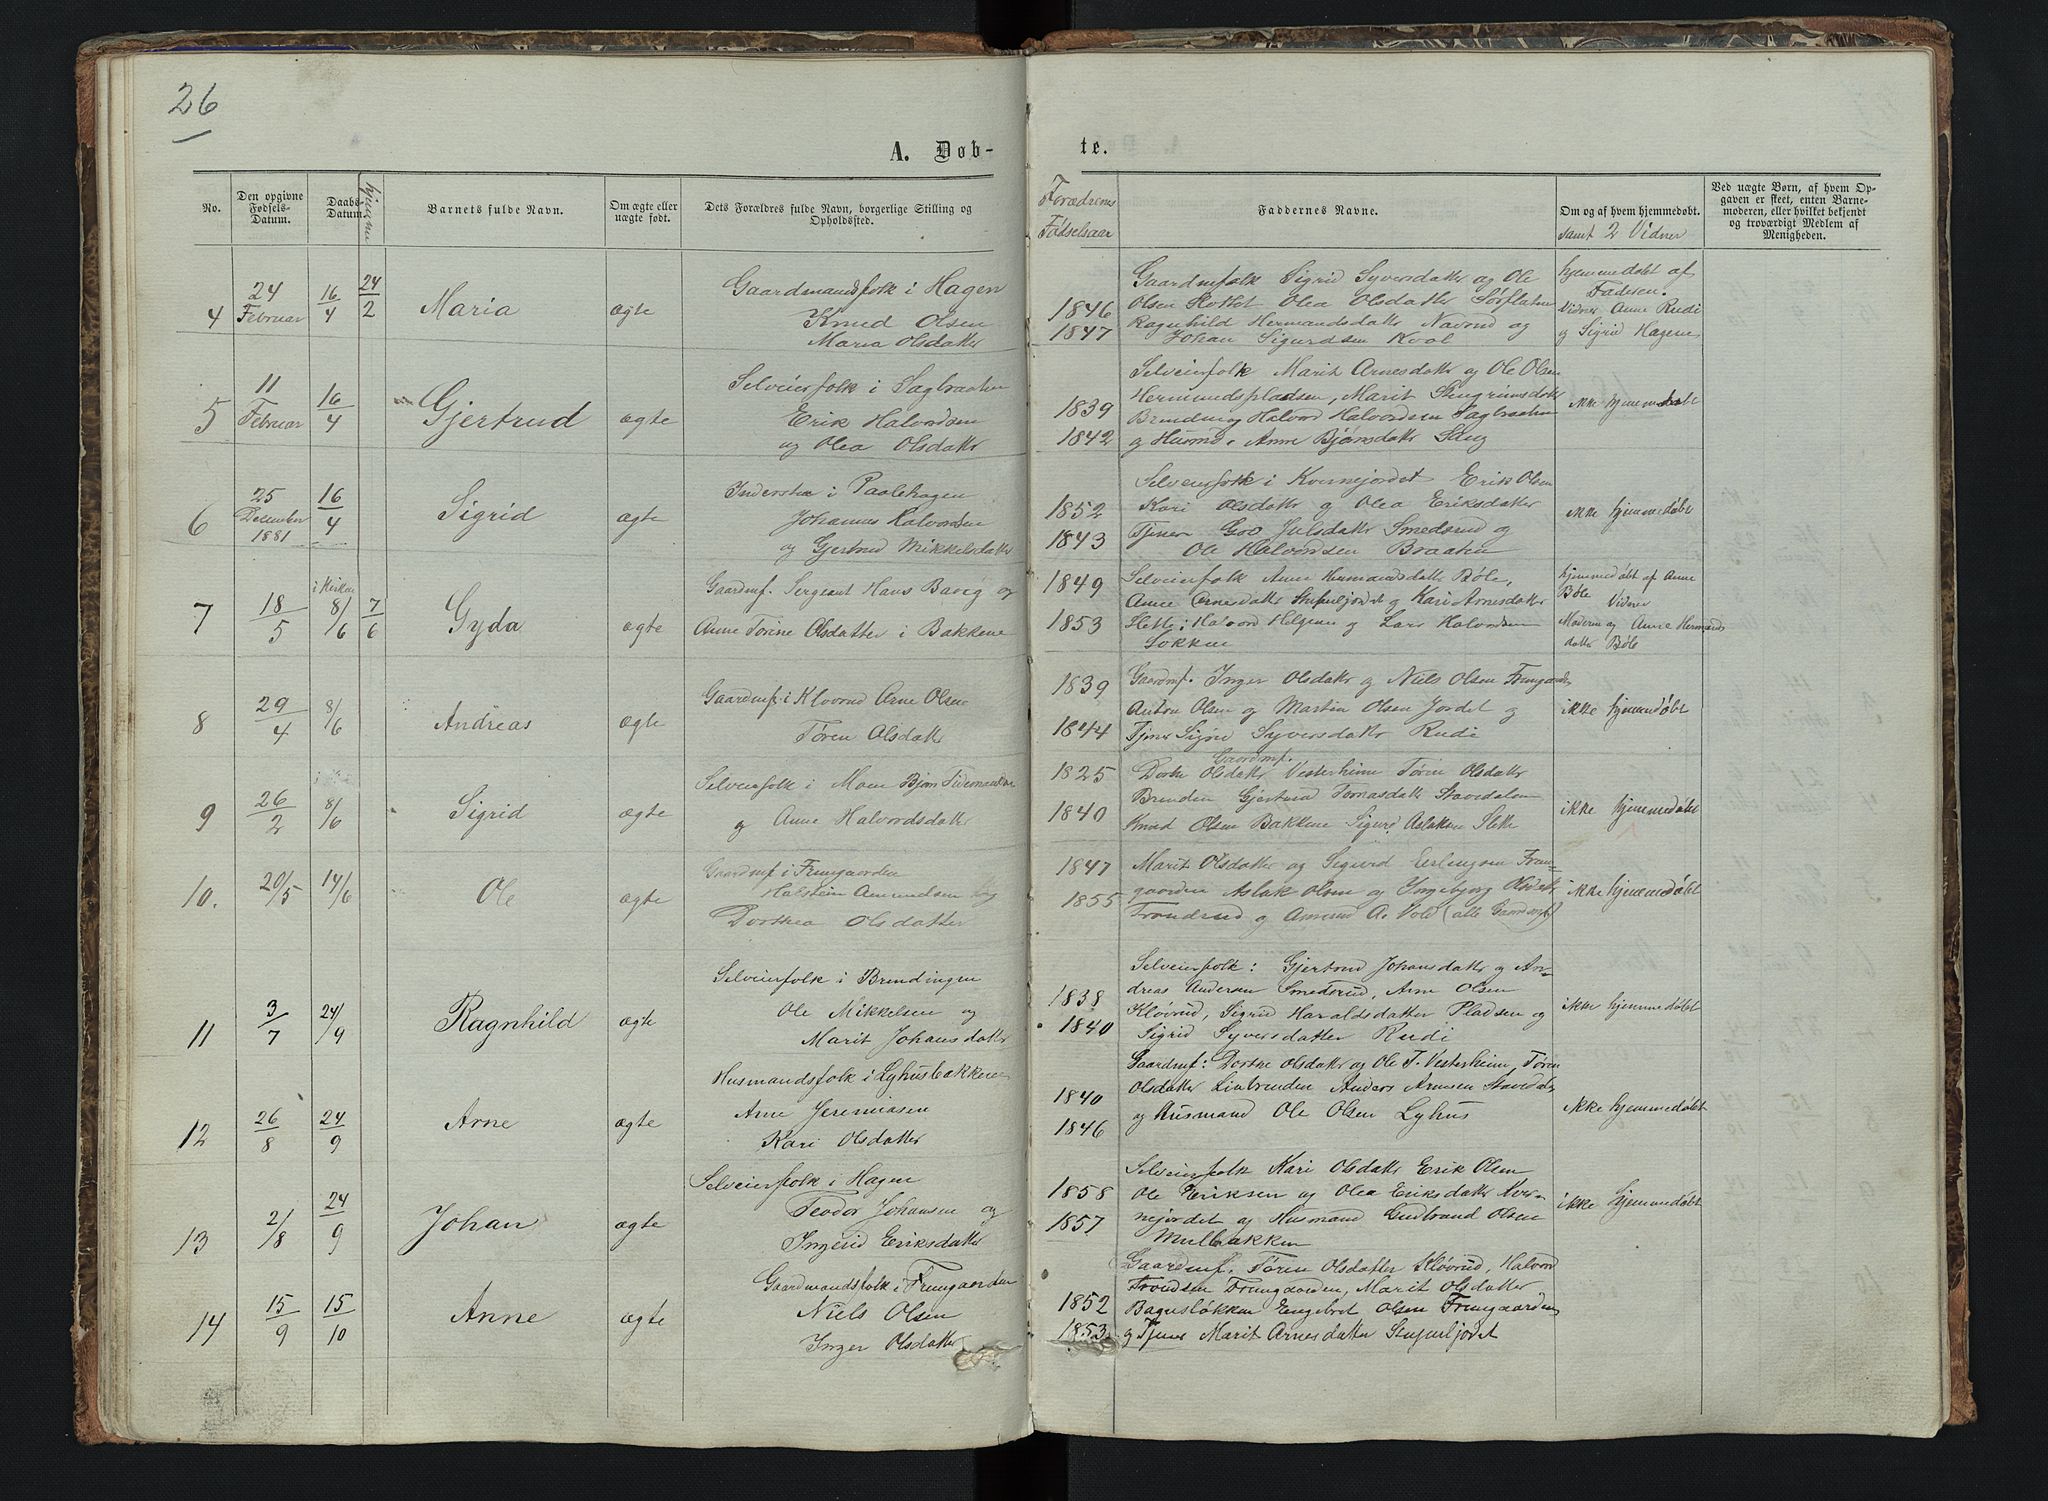 26
A. Døb-
te.
No.
Den opgivne Fødsels-Datum.
Daabs-Datum.
hjemme
Barnets fulde Navn.
Om ægte eller uægte født.
Dets Forældres fulde Navn, borgerlige Stilling og Opholdssted.
Forædrenes Fødselsaar
Faddernes Navne.
Om og af hvem hjemmedøbt.
samt 2 Vidner
Ved uægte Børn, af hvem Op-
gaven er skeet, enten Barne-
moderen, eller hvilket bekjendt
og troværdigt Medlem af
Menigheden.
4
24 Februar
16/4
24/2
Maria
ægte
Gaardmandsfolk i Hagen
Knud Olsen
Maria Olsdatter
1846
1847
Gaardmfolk Sigrid Syversdattr og Ole
Olsen Olea Olsdatter
Ragnhild Hermandsdattr og
Johan Sigurdsen
hjemmedøbt af
Faderen.
Vidner Anne Rudi
og Sigrid Hagene
5
11 Februar
16/4
Gjertrud
ægte
Selveierfolk i Sagbraaten
Erik Halvordsen
og Olea Olsdattr
1839
1842
Selveierfolk Marit Arnesdattr og Ole Olsen
Hermundspladsen, Marit
og Halvor Halvordsen Sagbraaten
og Husmd. Anne Bjørnsdattr
ikke hjemmedøbt
6
25 December 1881
16/4
Sigrid
ægte
Inderster i Paalehagen
Johannes Halvordsen
og Gjertrud Mikkelsdattr
1852
1843
Selveierfolk i Kvernejordet Erik Olsen
Kari Olsdattr og Olea Eriksdatter
Tjener Julsdattr Smedsrud og
Ole Halvordsen Braaten
ikke hjemmedøbt
7
18/5
i Kirken
8/6
7/6
Gyda
ægte
Gaardmf. Sergeant Hans Baveg og
Anne Torine Olsdatter i Bakkene
1849
1853
Selveierfolk Anne Hermandsdattr Bøle,
Anne Arnesdattr og Kari Arnesdattr
Slette; Halvord Helgesen og Lars Halvordsen
Løkken
hjemmedøbt af Anne
Bøle
Vidner
Moderen og Anne Hermands
datter Bøle
8
29/4
8/6
Andreas
ægte
Gaardmf. i Kløvrud Arne Olsen
Tøren Olsdattr
1839
1844
Gaardmf. Inger Olsdattr og Niels Olsen Frengaarden
Anton Olsen og Martin Olsen Jordet og
Tjener Signe Syversdattr Rudi
ikke hjemmedøbt
9
26/2
8/6
Sigrid
ægte
Selveierfolk i Moen Bjørn
og Anne Halvordsdattr
1825
1840
Gaardmf.
Dorte Olsdattr Vesterheim Tøren Olsdattr
Brenden Gjertrud Tomasdattr Stavedalen
Knud Olsen Bakkene Sigurd Aslaksen Slette
ikke hjemmedøbt
10.
20/5
14/6
Ole
ægte
Gaardmf i Frengaarden
Halstein Amundsen og
Dorthea Olsdatter
1847
1855
Marit Olsdattr og Sigurd Erlingsen Fren-
gaarden Aslak Olsen og Ingebjorg Olsdattr
Trondrud og A. Vold (alle Gaardmf)
ikke hjemmedøbt
11
3/7
24/9
Ragnhild
ægte
Selveierfolk i Brendingen
Ole Mikkelsen og
Marit Johansdatter
1838
1840
Selveierfolk: Gjertrud Johansdattr og An-
dreas Andersen Smedsrud, Arne Olsen
Kløvrud, Sigrid Haraldsdatter Pladsen og
Sigrid Syversdatter Rudi
ikke hjemmedøbt
12
26/8
24/9
Arne
ægte
Husmandsfolk i Lyhusbakken
Arne Jeremiasen
Kari Olsdatter
1840
1846
Gaardmf: Dorthe Olsdattr og Ole T. Vesterheim, Tøren
Olsdatter Liebrenden Anders Arnesen Stavedal
og Husmand Ole Olsen Lyhus
ikke hjemmedøbt
13
2/8
24/9
Johan
ægte
Selveierfolk i Hagen
Teodor Johansen og
Ingerid Eriksdattr
1858
1857
Selveierfolk Kari Olsdattr Erik Olsen
Ole Eriksen og Olea Eriksdattr Kver-
nejordet og Husmand Gudbrand Olsen
Mulbakken
ikke hjemmedøbt
14
15/9
15/10
Anne
ægte
Gaardmandsfolk i Frengaarden
Niels Olsen
Inger Olsdatter
1852
1853
Gaardmf. Tøren Olsdatter Kløvrud, Halvord
Trondsen Frengaarden, Marit Olsdatter
Bagnsløkken Engebret Olsen Frengaarden
og Tjener Marit Arnesdatter